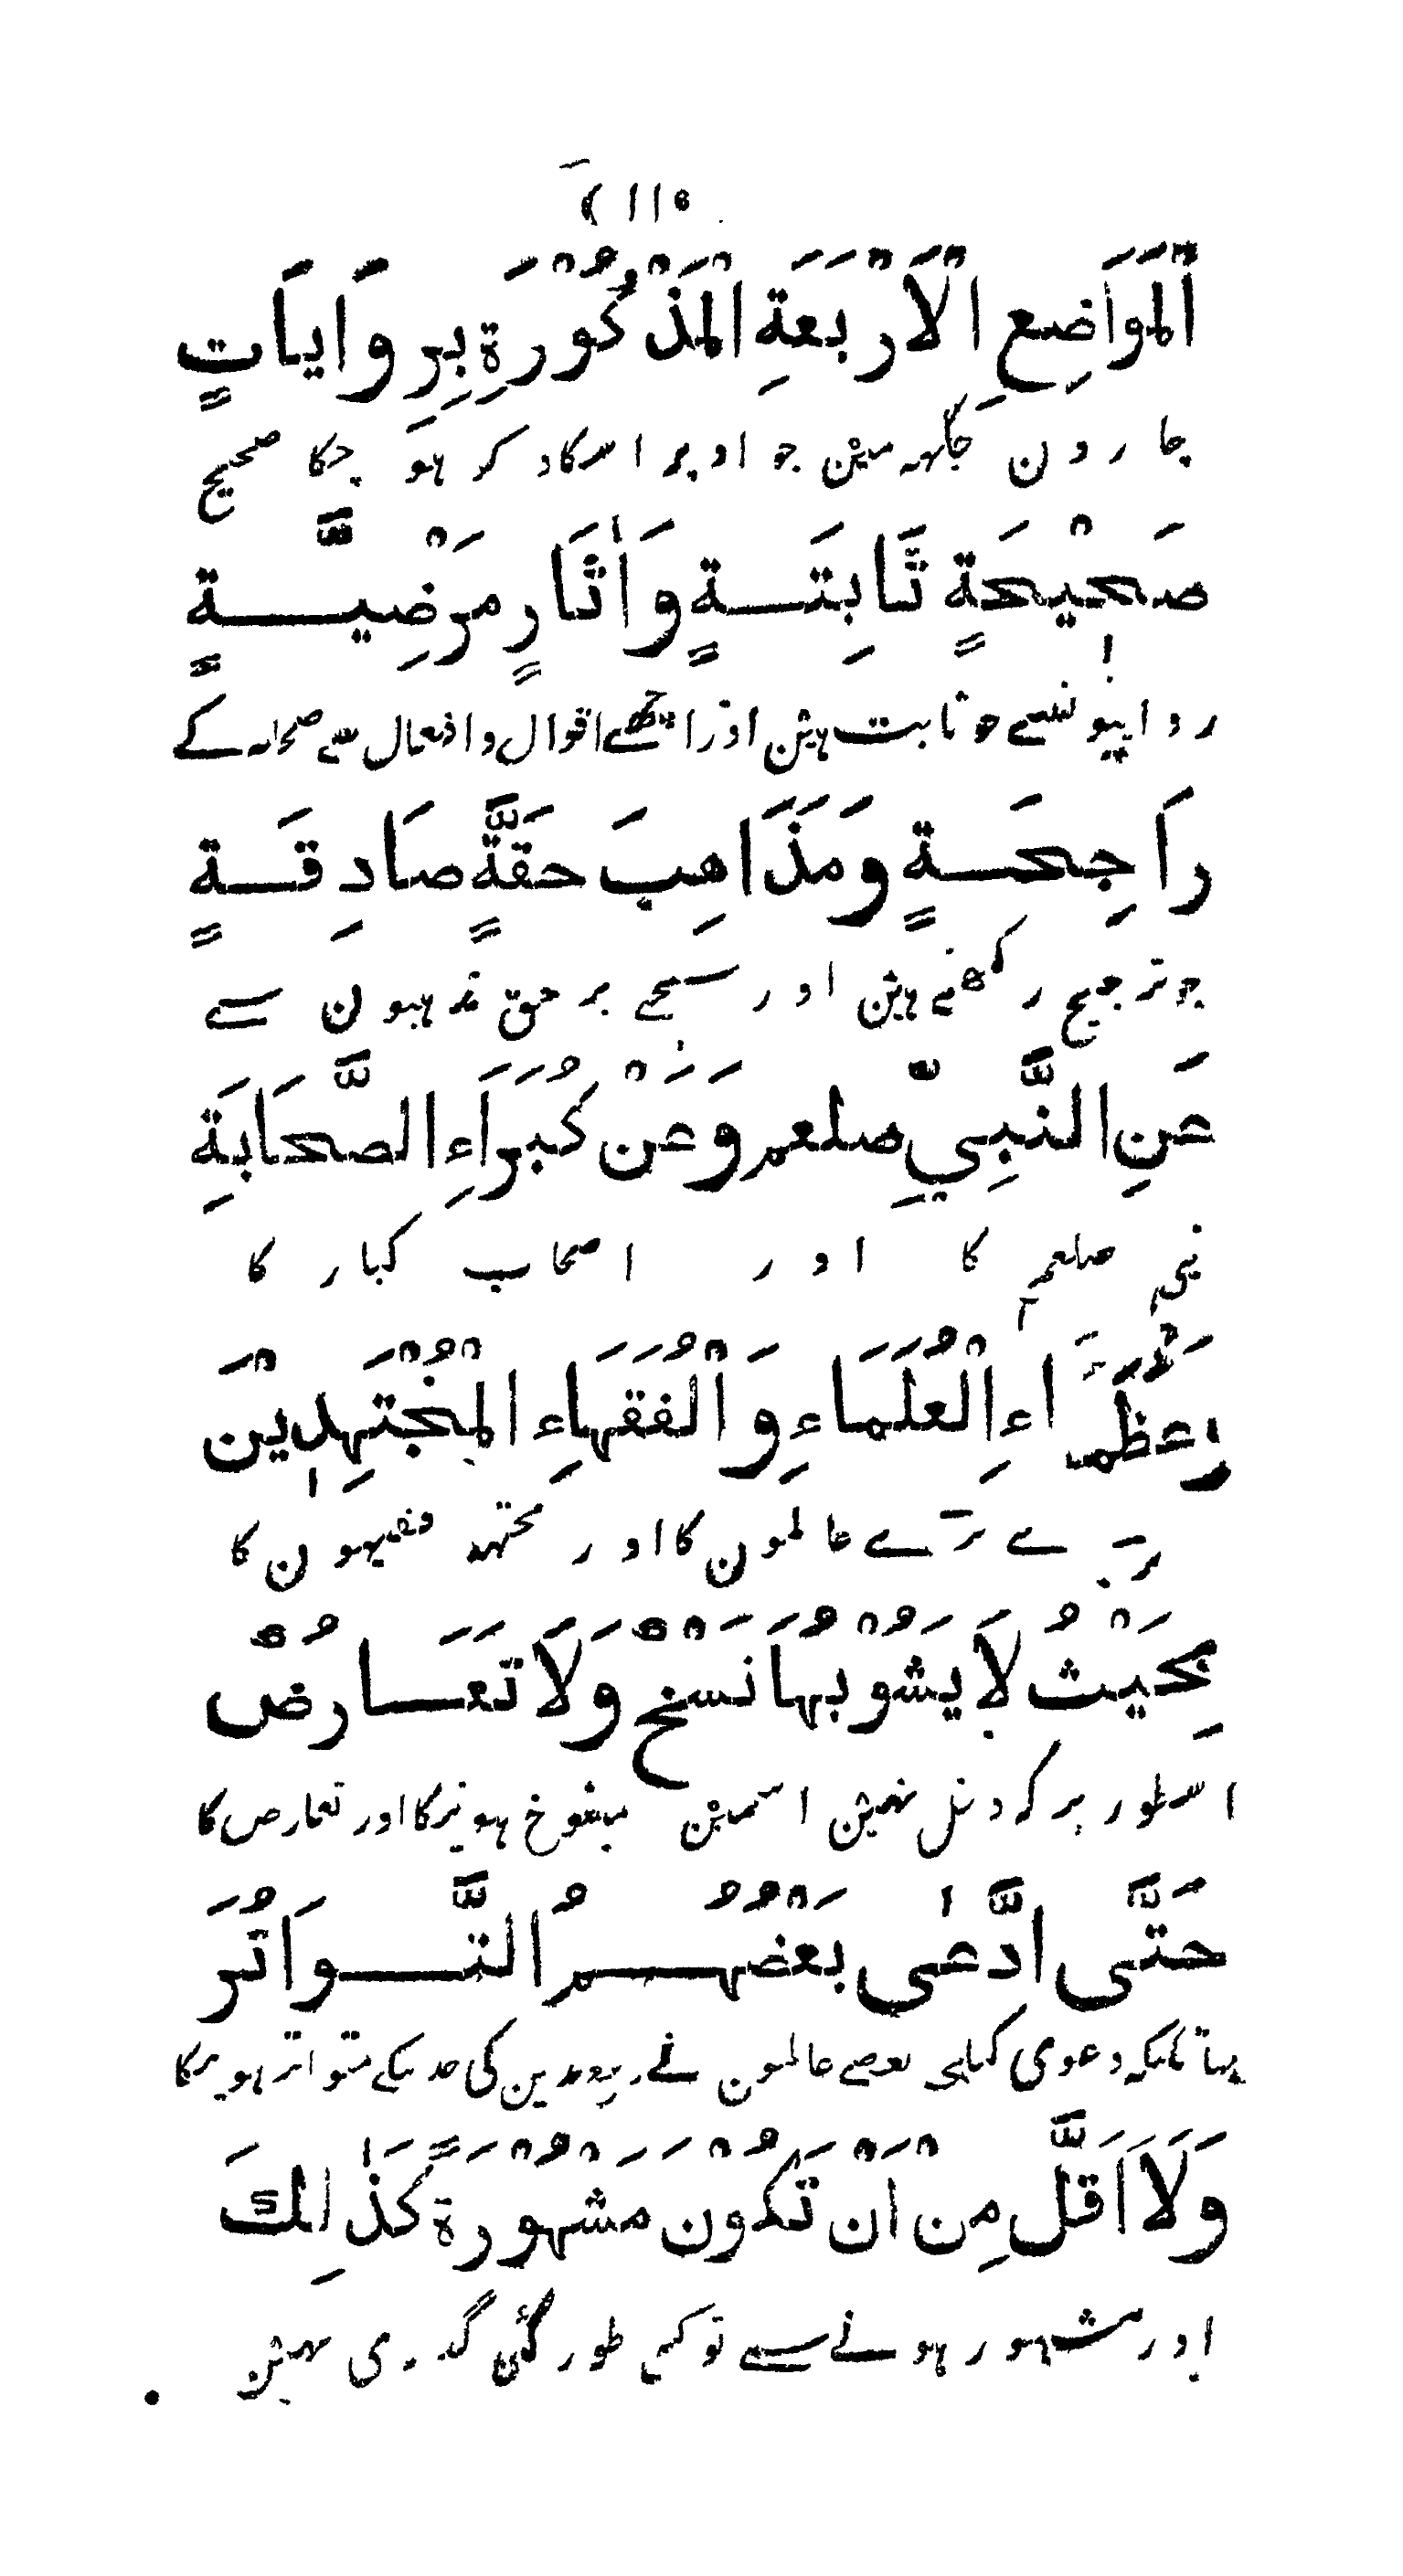 اَلْمَوَاضِعِ الْاَرْبَعَةِ الْمَذْكُوْرَةِ بِرِوَايَاتٍ
چارون جگہہ مین جو اوپر اسکا ذکر ہو چکا صحیح
صَحِيْحَةٍ ثَابِتَةٍ وَاٰثَارٍ مَرْضِيَّةٍ
روایتونسے جو ثابت ہین اور اچھے اقوال و افعال سے صحابہ کے
رَاجِحَةٍ وَمَذَاهِبَ حَقَّةٍ صَادِقَةٍ
جو ترجیح رکھتے ہین اور سچے برحق مذہبون سے
عَنِ النَّبِيِّ صلعم وَعَنْ كُبَرَاءِ الصَّحَابَةِ
نبی صلعم کا اور اصحاب کبار کا
وَعُظَمَاءِ الْعُلَمَاءِ وَالْفُقَهَاءِ الْمُجْتَهِدِيْنَ
بڑے بڑے عالمون کا اور مجتہد فقیہون کا
بِحَيْثُ لَا يَشُوْبُهَا نَسْخٌ وَلَا تَعَارُضٌ
اسطور پر کہ دخل نہین اسمین منسوخ ہونیکا اور تعارض کا
حَتّٰى ادَّعٰى بَعْضُهُمُ التَّوَاتُرَ
یہانتلکہ دعوی کیاہی بعضے عالمون نے رفع یدین کی حدیثکے متواتر ہونیکا
وَلَا اَقَلَّ مِنْ اَنْ تَكُوْنَ مَشْهُوْرَةً كَذٰلِكَ
اور مشہور ہونے سے تو کسی طور گئی گذری نہین